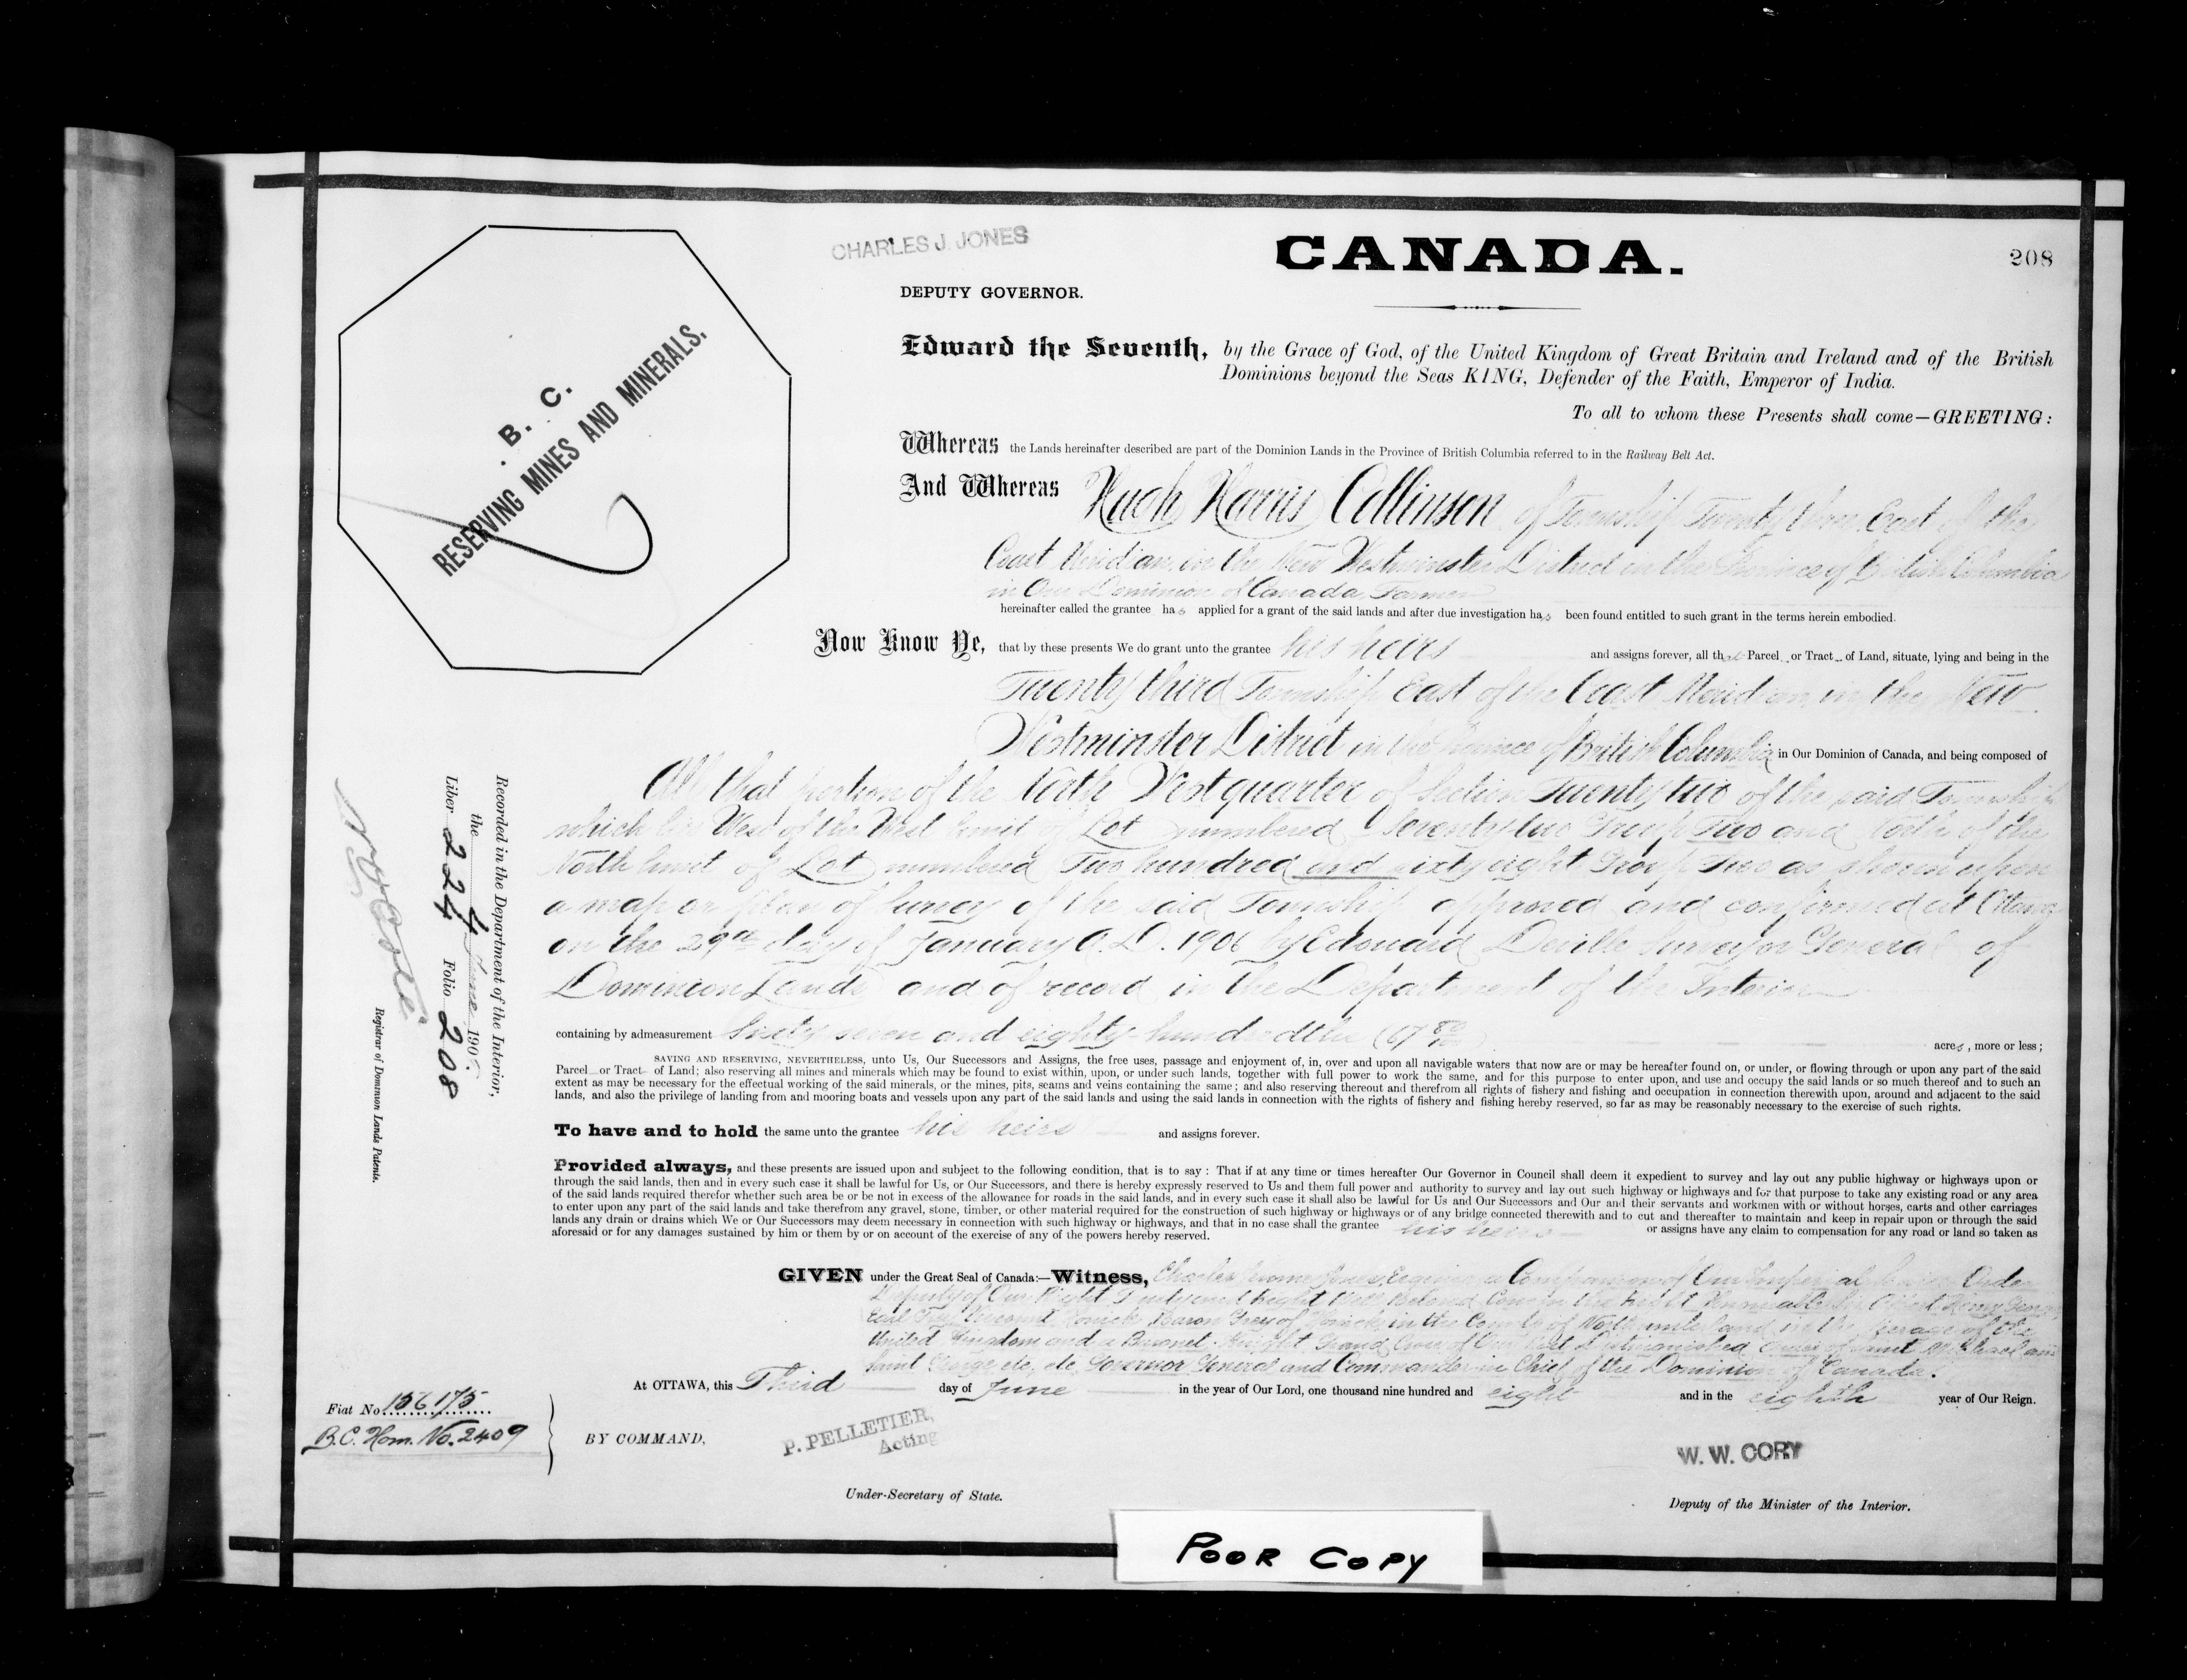 CHARLES J. JONES
CANADA.
208
DEPUTY GOVERNOR.
Edward the Seventh, by the Grace of God, of the United Kingdom of Great Britain and Ireland and of the British
Dominions beyond the Seas KING, Defender of the Faith, Emperor of India.
To all to whom these Presents shall come—GREETING:
B. C.
RESERVING MINES AND MINERALS.
Whereas the Lands hereinafter described are part of the Dominion Lands in the Province of British Columbia referred to in the Railway Belt Act.
And Whereas Hugh Harris Collinson of Township Twenty three East of the
Coast Meridian, in the New Westminster District in the Province of British Columbia
in Our Dominion of Canada, Farmer
hereinafter called the grantee has applied for a grant of the said lands and after due investigation has been found entitled to such grant in the terms herein embodied.
Now Know Ye, that by these presents We do grant unto the grantee his heirs and assigns forever, all that Parcel or Tract of Land, situate, lying and being in the
Twenty third Township East of the Coast Meridian, in the New
Westminster District in the Province of British Columbia in Our Dominion of Canada, and being composed of
All that portion of the North West quarter of Section Twenty two of the said Township
which lies West of the West limit of Lot numbered Seventy two Group Two and North of the
North limit of Lot numbered Two hundred and sixty eight Group Two as shown upon
a map or plan of survey of the said Township approved and confirmed at Ottawa
on the 29th day of January A.D. 1906 by Edouard Deville Surveyor General of
Dominion Lands and of record in the Department of the Interior
containing by admeasurement Sixty seven and eighty hundredths (67 80/100) acres, more or less;
SAVING AND RESERVING, NEVERTHELESS, unto Us, Our Successors and Assigns, the free uses, passage and enjoyment of, in, over and upon all navigable waters that now are or may be hereafter found on, or under, or flowing through or upon any part of the said
Parcel or Tract of Land; also reserving all mines and minerals which may be found to exist within, upon, or under such lands, together with full power to work the same, and for this purpose to enter upon, and use and occupy the said lands or so much thereof and to such an
extent as may be necessary for the effectual working of the said minerals, or the mines, pits, seams and veins containing the same; and also reserving thereout and therefrom all rights of fishery and fishing and occupation in connection therewith upon, around and adjacent to the said
lands, and also the privilege of landing from and mooring boats and vessels upon any part of the said lands and using the said lands in connection with the rights of fishery and fishing hereby reserved, so far as may be reasonably necessary to the exercise of such rights.
To have and to hold the same unto the grantee his heirs and assigns forever.
Provided always, and these presents are issued upon and subject to the following condition, that is to say: That if at any time or times hereafter Our Governor in Council shall deem it expedient to survey and lay out any public highway or highways upon or
through the said lands, then and in every such case it shall be lawful for Us, or Our Successors, and there is hereby expressly reserved to Us and them full power and authority to survey and lay out such highway or highways and for that purpose to take any existing road or any area
of the said lands required therefor whether such area be or be not in excess of the allowance for roads in the said lands, and in every such case it shall also be lawful for Us and Our Successors and Our and their servants and workmen with or without horses, carts and other carriages
to enter upon any part of the said lands and take therefrom any gravel, stone, timber, or other material required for the construction of such highway or highways or of any bridge connected therewith and to cut and thereafter to maintain and keep in repair upon or through the said
lands any drain or drains which We or Our Successors may deem necessary in connection with such highway or highways, and that in no case shall the grantee his heirs or assigns have any claim to compensation for any road or land so taken as
aforesaid or for any damages sustained by him or them by or on account of the exercise of any of the powers hereby reserved.
GIVEN under the Great Seal of Canada:—Witness, Charles Jones, Esquire, a Companion of Our Imperial Service Order
Deputy of Our Right Trusty and Right Well Beloved Cousin the Right Honourable Sir Albert Henry George
Earl Grey, Viscount Howick, Baron Grey of Howick, in the County of Northumberland in the Peerage of the
United Kingdom and a Baronet, Knight Grand Cross of Our Most Distinguished Order of Saint Michael and
Saint George etc, etc, Governor General and Commander in Chief of the Dominion of Canada.
At OTTAWA, this Third day of June in the year of Our Lord, one thousand nine hundred and eight and in the eighth year of Our Reign.
BY COMMAND,
P. PELLETIER,
Acting
Under-Secretary of State.
W. W. CORY
Deputy of the Minister of the Interior.
Fiat No 156175
B.C. Hom. No. 2409
Recorded in the Department of the Interior,
the 4 June 1908.
Liber 224 Folio 208
N. O. Coté
Registrar of Dominion Lands Patents.
POOR COPY